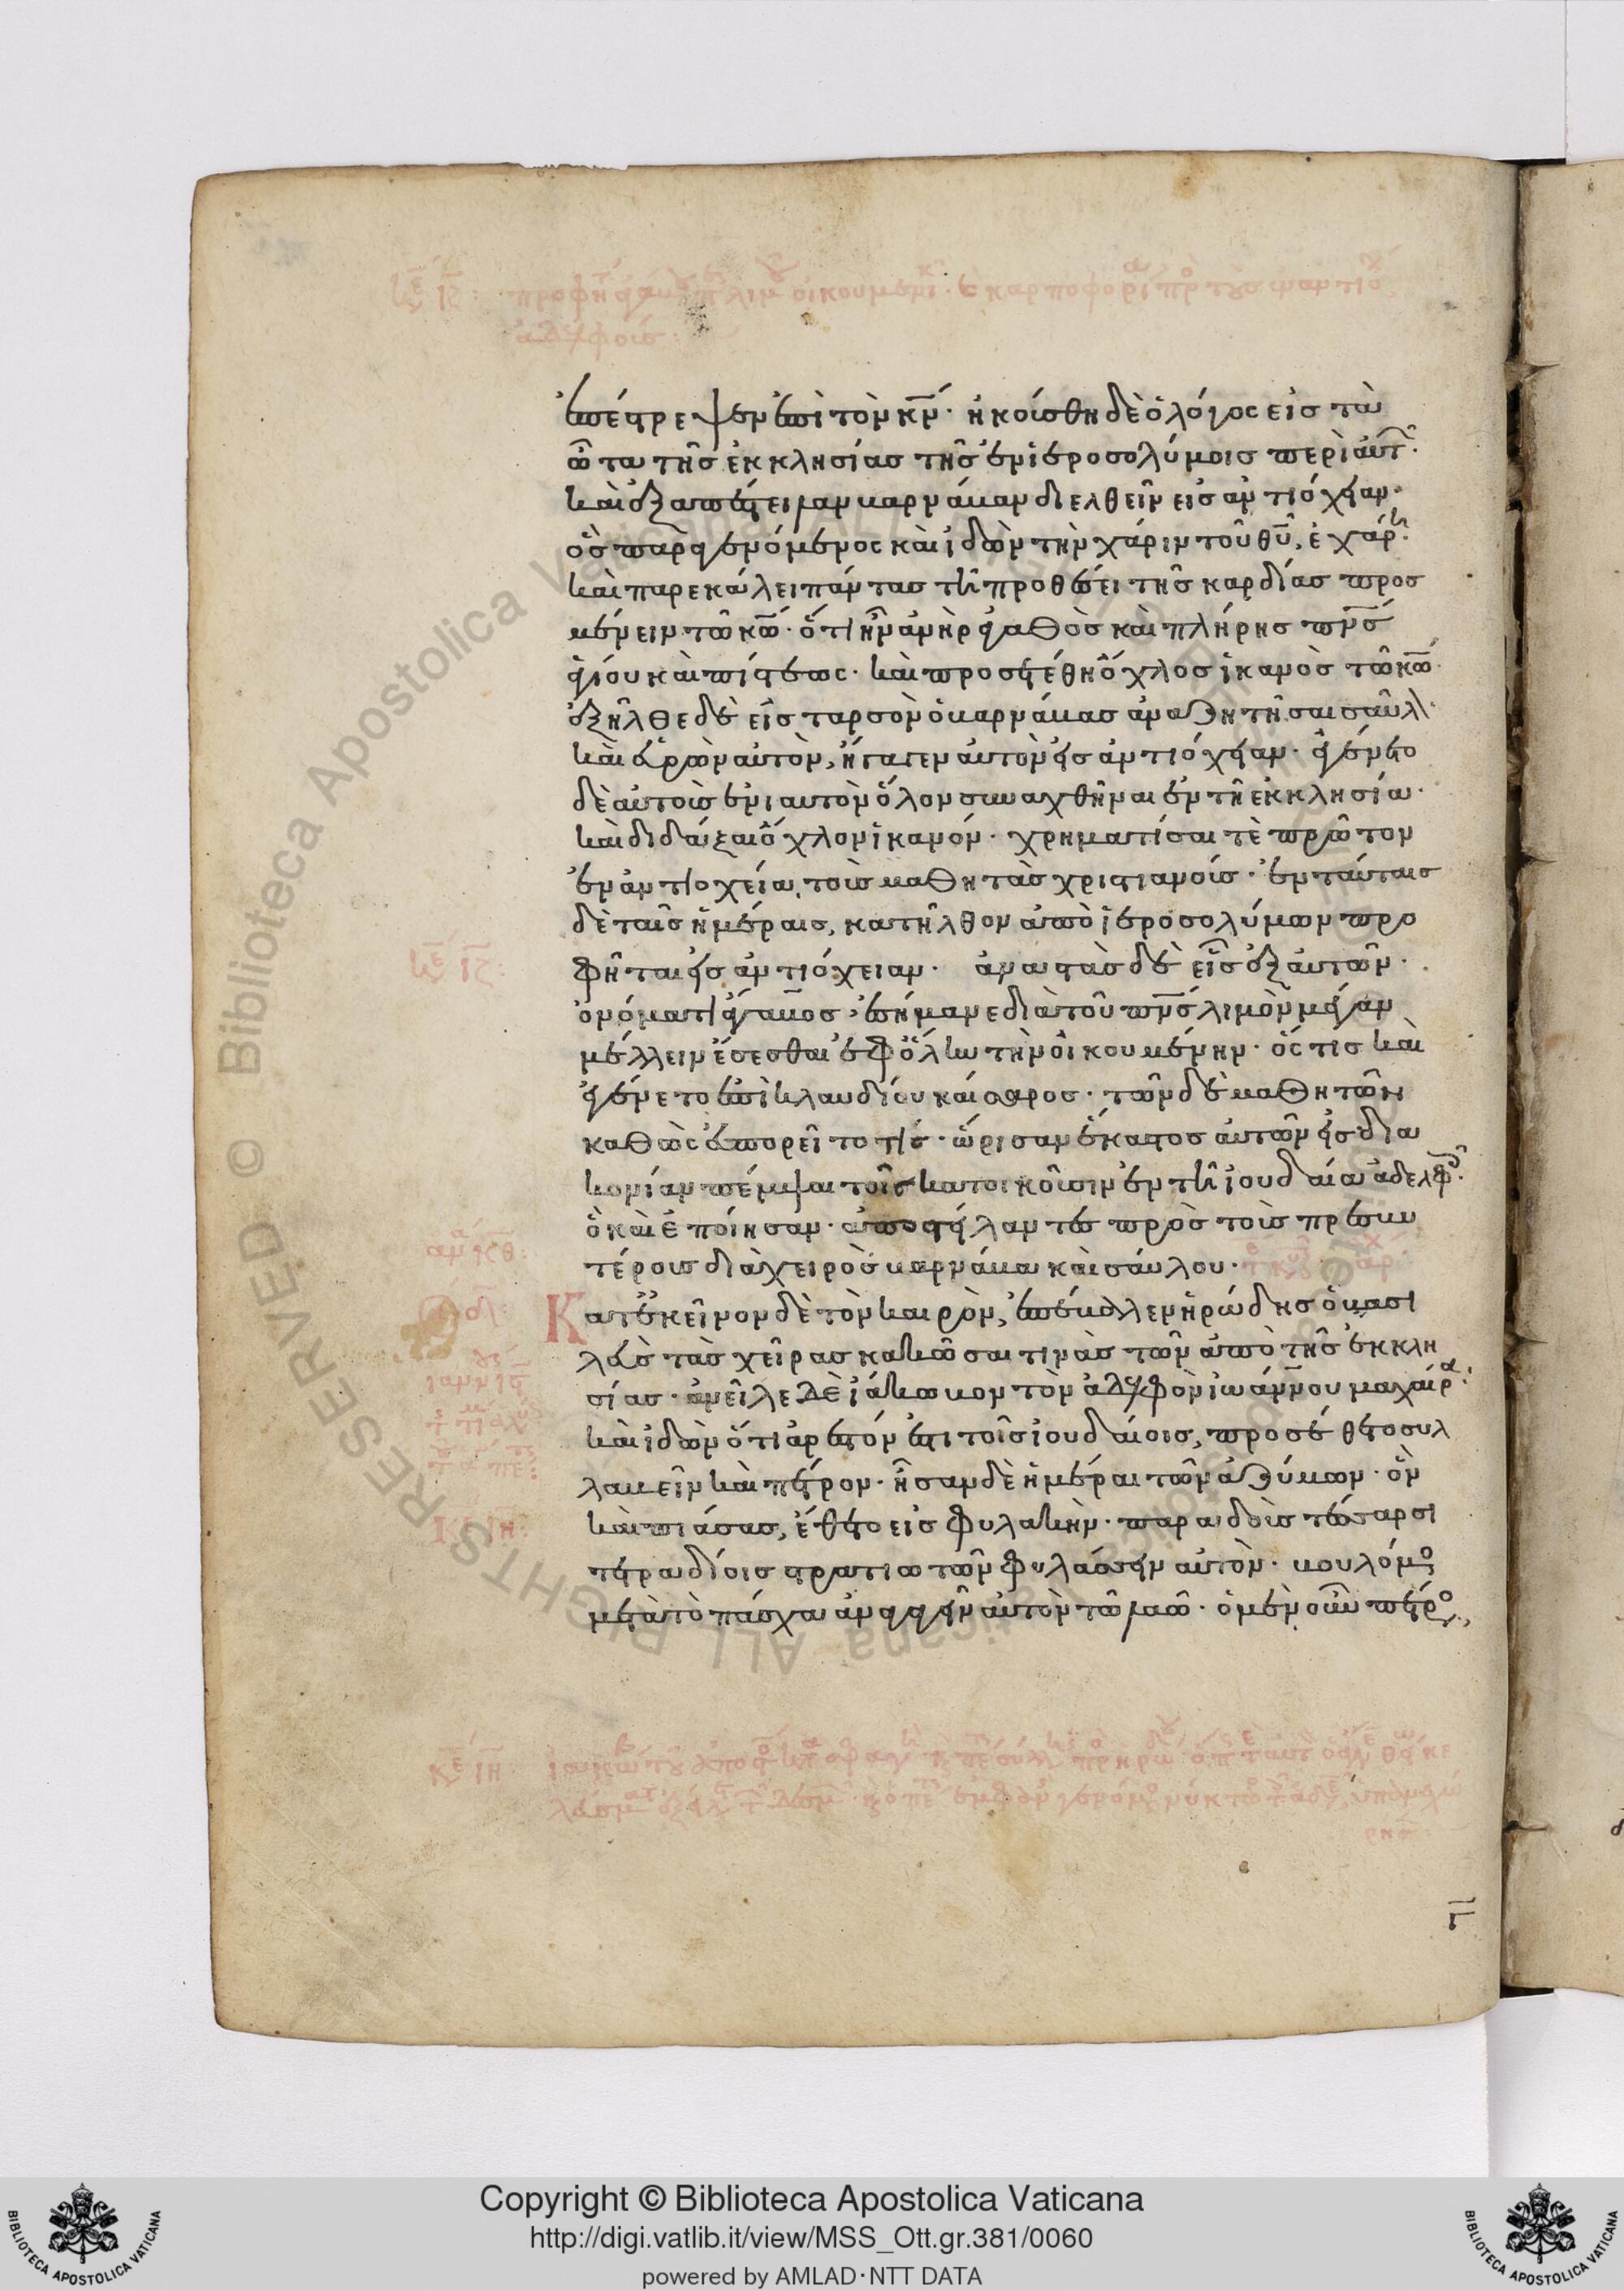 ἐπέστρεψεν ἐπὶ τὸν κν̅· ἠκούσθη δὲ ὁ λόγος εἰς τὰ
ὦτα τῆς ἐκκλησίας τῆς ἐν ἱεροσολύμοις περὶ αὐτ̅·
καὶ ἐξαπέστειλαν βαρνάβαν διελθεῖν εἰς ἀντιόχειαν·
ὃς παραγενόμενος καὶ ἰδὼν τὴν χάριν τοῦ θυ̅, ἐχάρη·
καὶ παρεκάλει πάντας τῆ προθέσει τῆς καρδίας προσ
μένειν τῶ κω̅· ὅτι ἦν ἀνὴρ ἀγαθὸς καὶ πλήρης πνς̅
ἁγίου καὶ πίστεως· καὶ προσετέθη ὄχλος ἱκανὸς τῶ κω̅·
ἐξῆλθε δὲ εἰς ταρσὸν ὁ βαρνάβας ἀναζητῆσαι σαῦλ·
καὶ εὑρὼν αὐτὸν, ἤγαγεν αὐτὸν εἰς ἀντιόχειαν· ἐγένετο
δὲ αὐτοὺς ἐνιαυτὸν ὅλον συναχθῆναι ἐν τῆ ἐκκλησία·
καὶ διδάξαι ὄχλον ἱκανόν· χρηματίσαι τὲ πρῶτον
ἐν ἀντιοχεία, τοὺς μαθητὰς χριστιανούς· ἐν ταύταις
δὲ ταῖς ἡμέραις, κατῆλθον ἀπὸ ἱεροσολύμων προ
φῆται εἰς ἀντιόχειαν· ἀναστὰς δὲ εἷς ἐξ αὐτῶν·
ὀνόματι ἄγαβος· ἐσήμανε διὰ τοῦ πνς̅ λιμὸν μέγαν
μέλλειν ἔσεσθαι ἐφ ὅλην τὴν οἰκουμένην· ὅς τις καὶ
ἐγένετο ἐπὶ κλαυδίου καίσαρος· τῶν δὲ μαθητῶν
καθὼς εὐπορεῖτο τίς· ὥρισαν ἕκαστος αὐτῶν εἰς δια
κονίαν πέμψαι τοῖς κατοικοῦσιν ἐν τῆ ἰουδαία ἀδελφ·
ὃ καὶ ἐποίησαν· ἀποστείλαντες πρὸς τοὺς πρεσβυ
τέρους διὰ χειρὸς βαρνάβα καὶ σαύλου·
Κατ ἐκεῖνον δὲ τὸν καιρὸν, ἐπέβαλεν ἡρώδης ὁ βασι
λεὺς τὰς χεῖρας κακῶσαι τινὰς τῶν ἀπὸ τῆς ἐκκλη
σίας· ἀνεῖλε δὲ ἰάκωβον τὸν ἀδελφὸν ἰωάννου μαχαίρα·
καὶ ἰδὼν ὅτι ἀρεστόν ἐστι τοῖς ἰουδαίοις, προσέθετο συλ
λαβεῖν καὶ πέτρον· ἦσαν δὲ ἡμέραι τῶν ἀζύμων· ὃν
καὶ πιάσας, ἔθετο εἰς φυλακὴν· παραδοὺς τέσσαρσι
τετραδίοις στρατιωτῶν φυλάσσειν αὐτὸν· βουλόμ
μετὰ τὸ πάσχα ἀναγαγεῖν αὐτὸν τῶ λαῶ· ὁ μὲν οὖν πέτρο
Copyright © Biblioteca Apostolica Vaticana
http://digi.vatlib.it/view/MSS_Ott.gr.381/0060
powered by AMLAD·NTT DATA